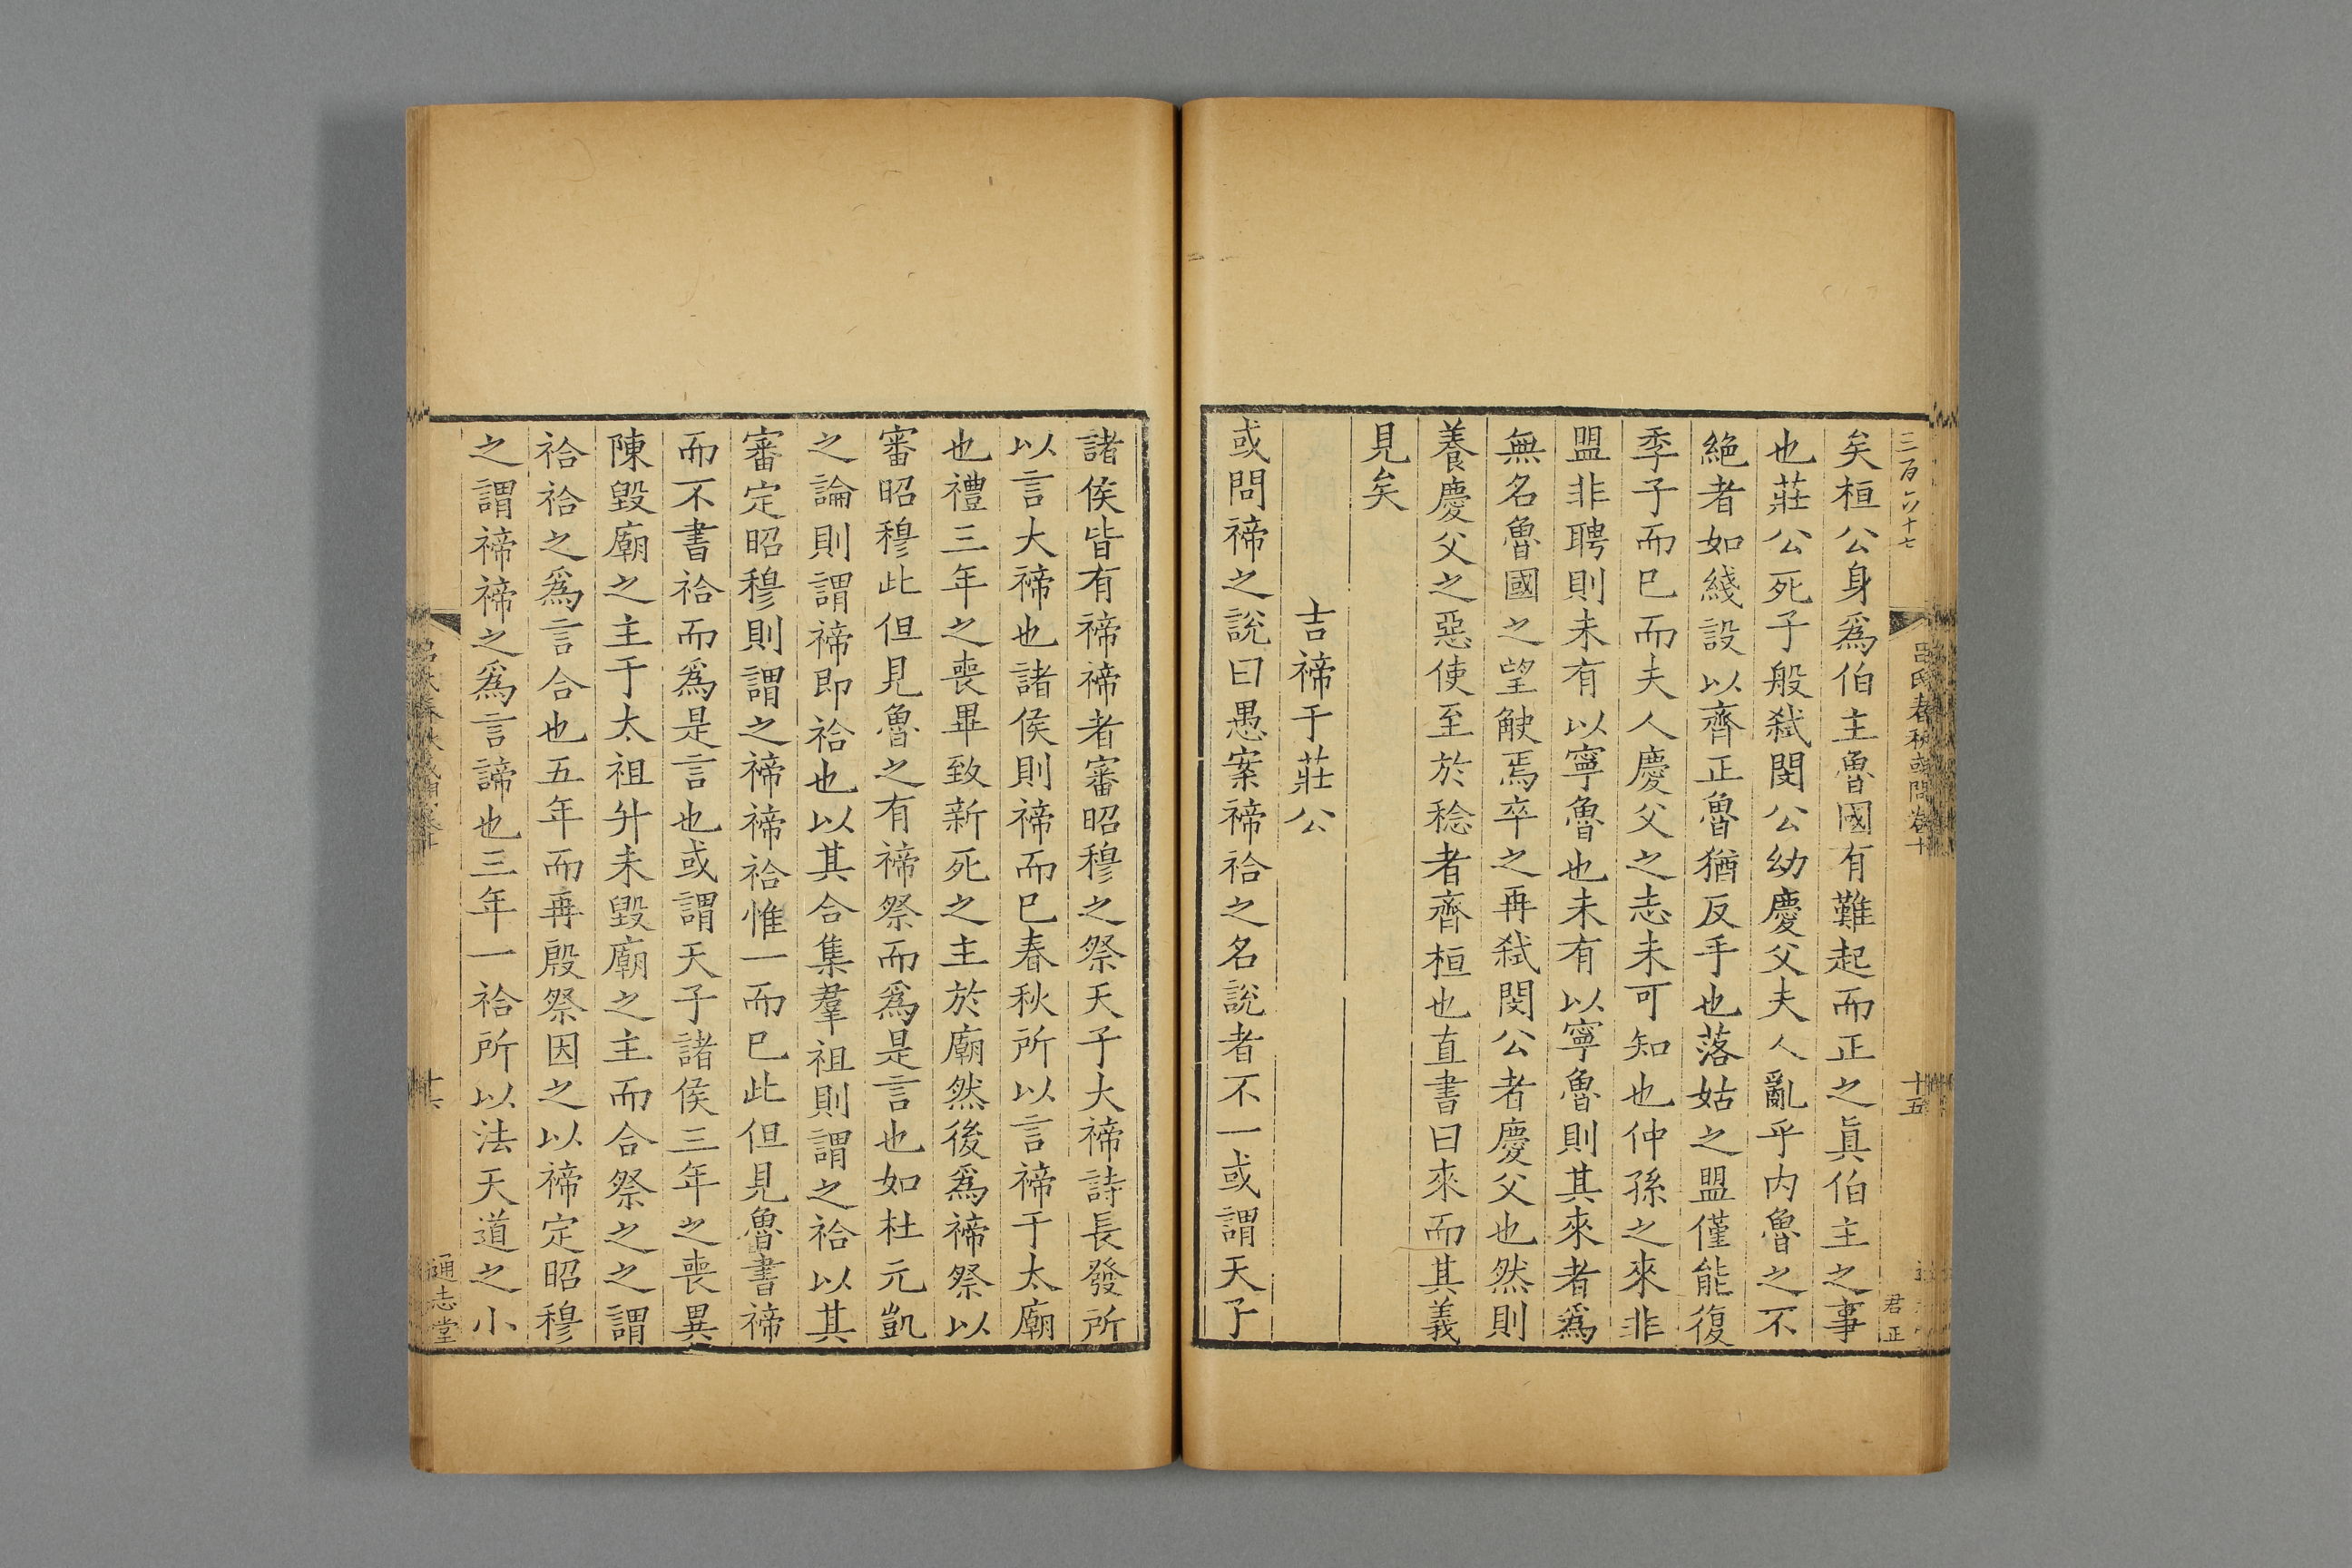 三百六十七
呂氏春秋或問卷十
十五
君正
矣桓公身爲伯主魯國有難起而正之眞伯主之事
也莊公死子般弑閔公幼慶父夫人亂乎内魯之不
絶者如綫設以齊正魯猶反手也落姑之盟僅能復
季子而已而夫人慶父之志未可知也仲孫之來非
盟非聘則未有以寧魯也未有以寧魯則其來者爲
無名魯國之望觖焉卒之再弑閔公者慶父也然則
養慶父之惡使至於稔者齊桓也直書曰來而其義
見矣
吉禘于莊公
或問禘之說曰愚案禘祫之名說者不一或謂天子
諸侯皆有禘禘者審昭穆之祭天子大禘詩長發所
以言大禘也諸侯則禘而已春秋所以言禘于太廟
也禮三年之喪畢致新死之主於廟然後爲禘祭以
審昭穆此但見魯之有禘祭而爲是言也如杜元凱
之論則謂禘即祫也以其合集羣祖則謂之祫以其
審定昭穆則謂之禘禘祫惟一而已此但見魯書禘
而不書祫而爲是言也或謂天子諸侯三年之喪異
陳毀廟之主于太祖升未毀廟之主而合祭之之謂
祫祫之爲言合也五年而再殷祭因之以禘定昭穆
之謂禘禘之爲言諦也三年一祫所以法天道之小
十六
通志堂